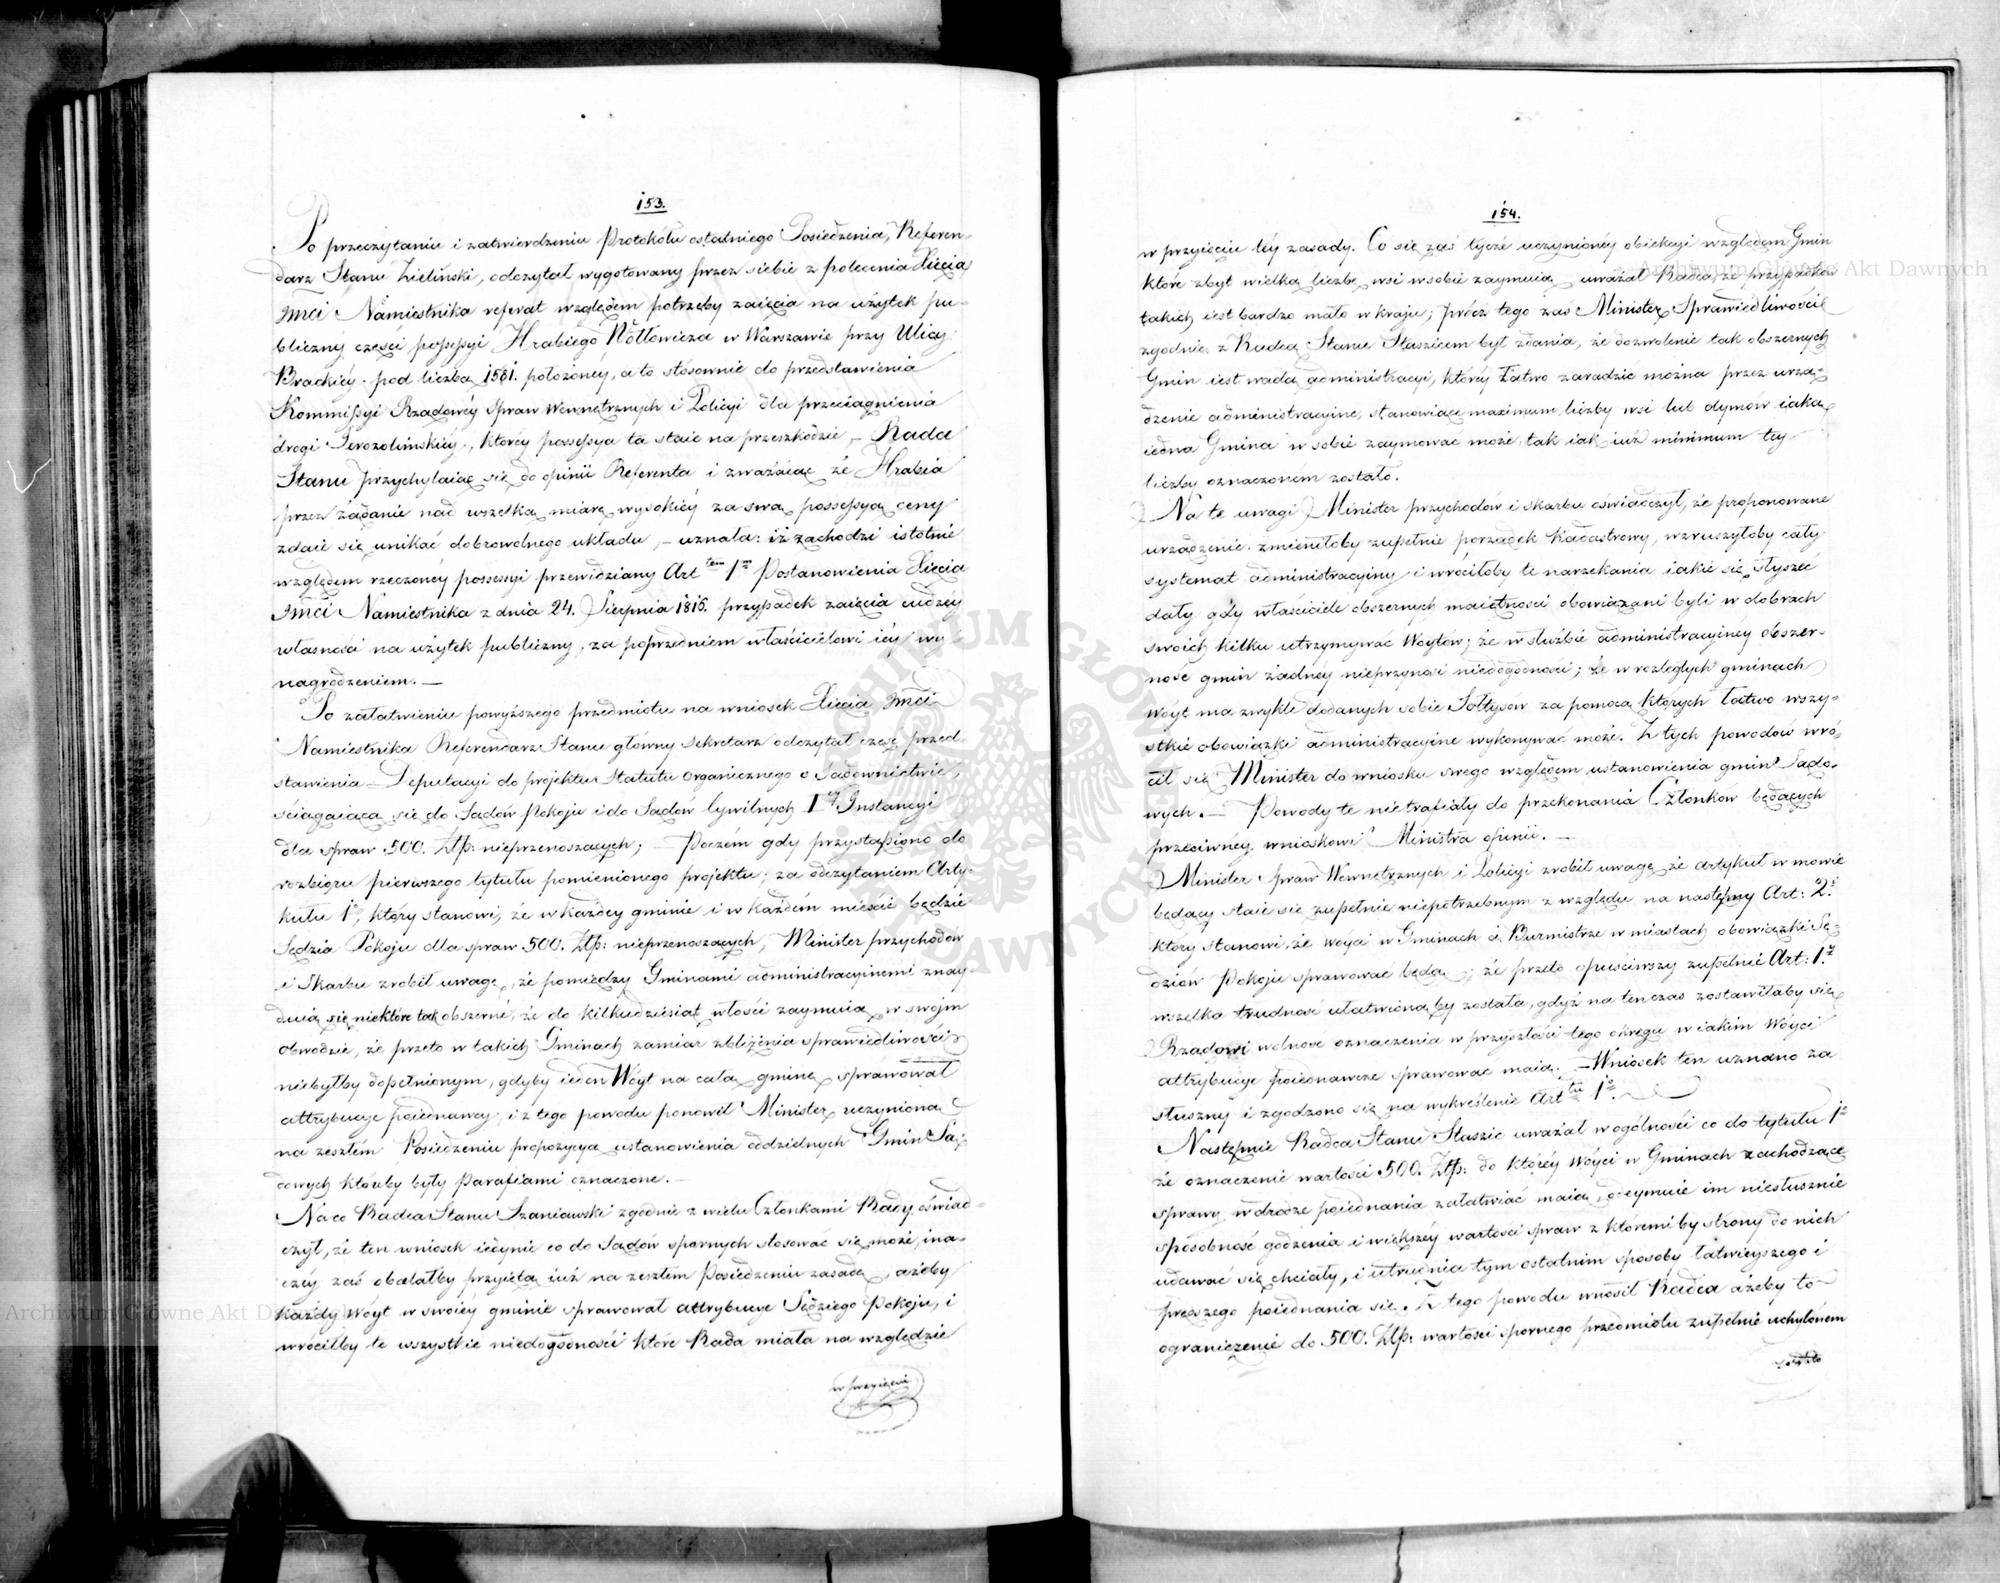 153.
Po przeczytaniu i zatwierdzeniu Protokółu ostatniego Posiedzenia, Referen-
darz Stanu Zieliński, odczytał wygotowany przez siebie z polecenia Xięcia
Jmci Namiestnika referat względem potrzeby zaięcia na użytek pu-
bliczny części possessyi Hrabiego Wołłowicza w Warszawie przy Ulicy
Brackiéy pod liczbą 1581. położoney, a to stósownie do przedstawienia
Kommissyi Rządowéy Spraw Wewnętrznych i Policyi dla przeciągnienia
drogi Jerozolimskiéy, któréy possessya ta staie na przeszkodzie, – Rada
Stanu przychylaiąc się do opinii Referenta i zważaiąc że Hrabia
przez żądanie nad wszelką miarę wysokiéy za swą possessyą ceny
zdaie się unikać dobrowolnego układu, – uznała: iż zachodzi istotnie
względem rzeczonéy possessyi przewidziany Art tem 1m Postanowienia Xięcia
Jmci Namiestnika z dnia 24. Sierpnia 1816. przypadek zaięcia cudzéy
własności na użytek publiczny, za poprzedniem właścicielowi iéy wy-
nagrodzeniem. —
Po załatwieniu powyższego przedmiotu na wniosek Xięcia Jmci
Namiestnika Referendarz Stanu główny Sekretarz odczytał część przed-
stawienia Deputacyi do projektu Statutu organicznego o Sądownictwie,
ściągaiącą się do Sądów Pokoju i do Sądów Cywilnych Iéy Instancyi
dla spraw 500. Złp: nieprzenoszących; – Poczém gdy przystąpiono do
rozbioru pierwszego tytułu pomienionego projektu; za odczytaniem Arty-
kułu 1o, który stanowi, że w każdey gminie i w każdém mieście będzie
Sędzia Pokoju dla spraw 500. Złp: nieprzenoszących, Minister przychodów
i Skarbu zrobił uwagę, że pomiędzy Gminami administracyinemi znay-
duią się niektóre tak obszerne, że do kilkudziesiąt włości zaymuią w swoim
obwodzie, że przeto w takich Gminach zamiar zbliżenia sprawiedliwości
niebyłby dopełnionym, gdyby ieden Wóyt na całą gminę sprawował
attrybucye poiednawcy; i z tego powodu ponowił Minister uczynioną
na zeszłém Posiedzeniu propozycyą ustanowienia oddzielnych Gmin Są-
dowych któreby były Parafiami oznaczone. —
Na co Radca Stanu Szaniawski zgodnie z wielu Członkami Rady oświad-
czył, że ten wniosek iedynie co do Sądów spornych stosować się może, ina-
czéy zaś obalałby przyiętą iuż na zeszłem Posiedzeniu zasadę, ażeby
każdy Wóyt w swoiéy gminie sprawował attrybucye Sędziego Pokoju, i
wróciłby te wszystkie niedogodności które Rada miała na względzie
w przyięciu
154.
w przyięciu téy zasady. Co się zaś tycze uczynionéy obiekcyi względem Gmin
które zbyt wielką liczbę wsi w sobie zaymuią uważał Radca, że przypadków
takich iest bardzo mało w kraju; prócz tego zaś Minister Sprawiedliwości
zgodnie z Radcą Stanu Staszicem był zdania, że dozwolenie tak obszernych
Gmin iest wadą administracyi, któréy łatwo zaradzić można przez urzą-
dzenie administracyine, stanowiące maximum liczby wsi lub dymów iaką
iedna Gmina w sobie zaymować może, tak iak iuż minimum tey
liczby oznaczoném zostało.
Na te uwagi Minister przychodów i skarbu oświadczył, że proponowane
urządzenie zmieniłoby zupełnie porządek kadastrowy, wzruszyłoby cały
systemat administracyiny i wróciłoby te narzekania iakie się słyszeć
dały gdy właściciele obszernych maiętności obowiązani byli w dobrach
swoich kilku utrzymywać Woytów; że w służbie administracyinéy obszer-
ność gmin żadnéy nieprzynosi niedogodności; że w rozległych gminach
Woyt ma zwykle dodanych sobie Sołtysów za pomocą których łatwo wszy-
stkie obowiązki administracyine wykonywać może. Z tych powodów wró-
cił się Minister do wniosku swego względem ustanowienia gmin Sądo-
wych. – Powody te nietrafiały do przekonania Członków będących
przeciwnéy wnioskowi Ministra opinii. —
Minister Spraw Wewnętrznych i Policyi zrobił uwagę że artykuł w mowie
będący staie się zupełnie niepotrzebnym z względu na następny Art: 2i
który stanowi, że Wóyci w Gminach a Burmistrze w miastach obowiązki Sę-
dziów Pokoju sprawować będą; że przeto opuściwszy zupełnie Art: 1y
wszelka trudność ułatwioną by została, gdyż na ten czas zostawiłaby się
Rządowi wolność oznaczenia w przyszłości tego okręgu w iakim Wóyci
attrybucye poiednawcze sprawować maią. – Wniosek ten uznano za
słuszny i zgodzono się na wykreślenie Art tu 1o.
Następnie Radca Stanu Staszic uważał w ogólności co do tytułu 1o
że oznaczenie wartości 500. Złp: do któréy Wóyci w Gminach zachodzące
sprawy w drodze poiednania załatwiać maią, odeymuie im niesłusznie
sposobność godzenia i większéy wartości spraw z któremi by strony do nich
udawać się chciały, i utrudnia tym ostatnim sposobu łatwieyszego i
prędszego poiednania się. Z tego powodu wnosił Radca ażeby to
ograniczenie do 500. Złp: wartości spornego przedmiotu zupełnie uchylonem
zostało